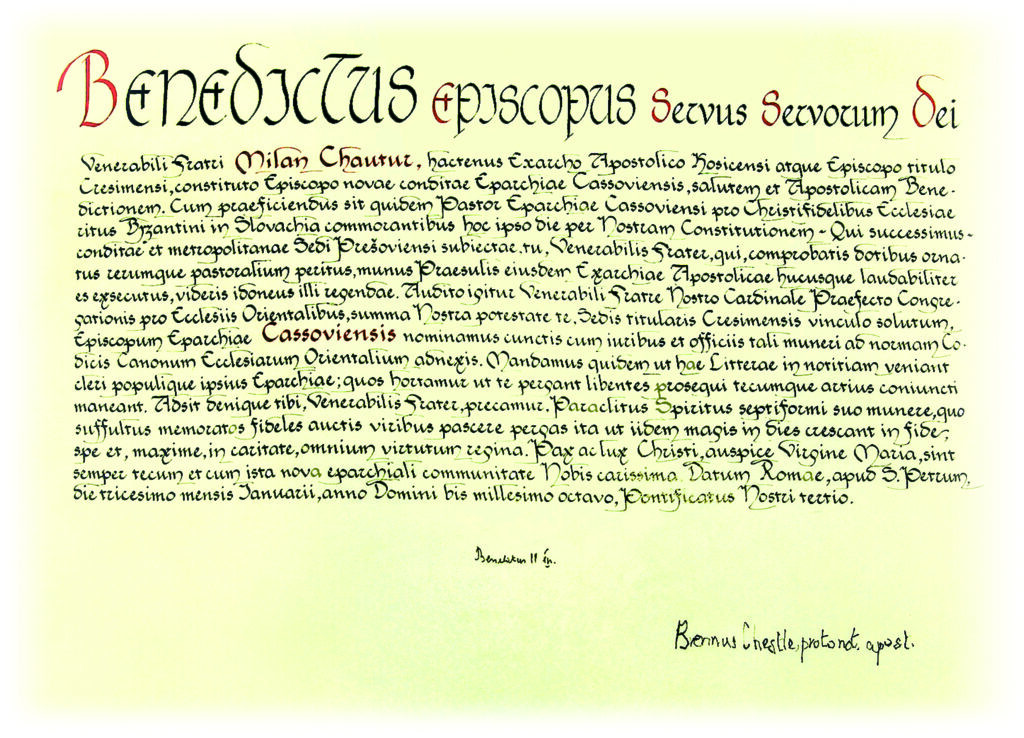 Benedictus Episcopus Servus Servorum Dei
Venerabili Fratri Milan Chautur, hactenus Exarcho Apostolico Kosicensi atque Episcopo titulo
Cresimensi, constituto Episcopo novae conditae Eparchiae Cassoviensis, salutem et Apostolicam Bene-
dictionem. Cum praeficiendus sit quidem Pastor Eparchiae Cassoviensi pro Christifidelibus Ecclesiae
ritus Byzantini in Slovachia commorantibus hoc ipso die per Nostram Constitutionem - Qui successimus -
conditae et metropolitanae Sedi Prešoviensi subiectae, tu, Venerabilis Frater, qui, comprobatis dotibus orna-
tus rerumque pastoralium peritus, munus Praesulis eiusdem Exarchiae Apostolicae hucusque laudabiliter
es exsecutus, videris idoneus illi regendae. Audito igitur Venerabili Fratre Nostro Cardinale Praefecto Congre-
gationis pro Ecclesiis Orientalibus, summa Nostra potestate te, Sedis titularis Cresimensis vinculo solutum,
Episcopum Eparchiae Cassoviensis nominamus cunctis cum iuribus et officiis tali muneri ad normam Co-
dicis Canonum Ecclesiarum Orientalium adnexis. Mandamus quidem ut hae Litterae in notitiam veniant
cleri populique ipsius Eparchiae; quos hortamur ut te pergant libentes prosequi tecumque artius coniuncti
maneant. Adsit denique tibi, Venerabilis Frater, precamur, Paraclitus Spiritus septiformi suo munere, quo
suffultus memoratos fideles auctis viribus pascere pergas ita ut iidem magis in dies crescant in fide,
spe et, maxime, in caritate, omnium virtutum regina. Pax ac lux Christi, auspice Virgine Maria, sint
semper tecum et cum ista nova eparchiali communitate Nobis carissima. Datum Romae, apud S. Petrum,
die tricesimo mensis Ianuarii, anno Domini bis millesimo octavo, Pontificatus Nostri tertio.
protonot. apost.